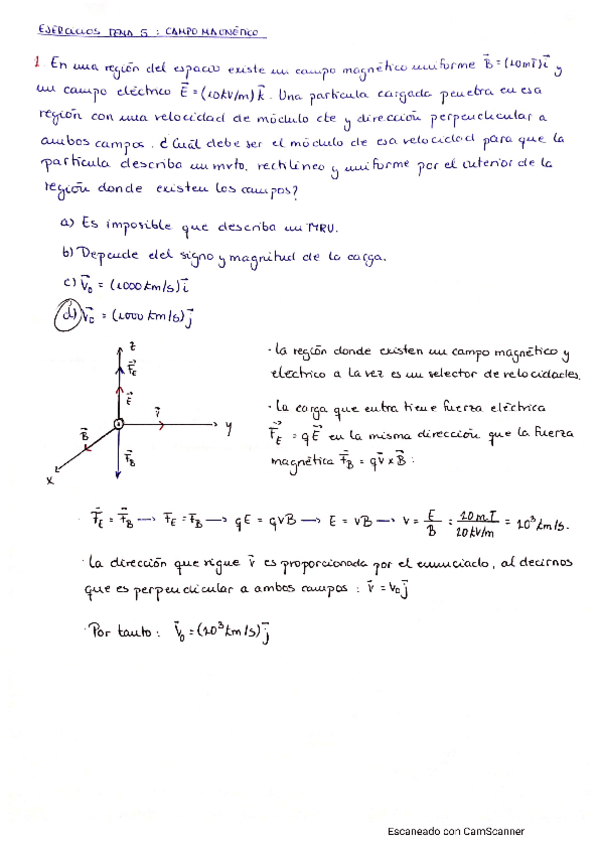 EJERCICIOS TEMA 5 : CAMPO MAGNÉTICO
1. En una región del espacio existe un campo magnético uniforme B⃗ = (10mT)i⃗ y
un campo eléctrico E⃗ = (10kV/m) k⃗. Una partícula cargada penetra en esa
región con una velocidad de módulo cte y dirección perpendicular a
ambos campos. ¿Cuál debe ser el módulo de esa velocidad para que la
partícula describa un mvto. rectilíneo y uniforme por el interior de la
región donde existen los campos?
a) Es imposible que describa un MRU.
b) Depende del signo y magnitud de la carga.
c) v⃗₀ = (1000 km/s) i⃗
d) v⃗₀ = (1000 km/s) j⃗
z
F⃗E
E⃗
B⃗
v⃗
y
F⃗B
x
· La región donde existen un campo magnético y
eléctrico a la vez es un selector de velocidades.
· La carga que entra tiene fuerza eléctrica
F⃗E = qE⃗ en la misma dirección que la fuerza
magnética F⃗B = qv⃗ x B⃗ :
· F⃗E = F⃗B → FE = FB → qE = qvB → E = vB → v = E/B = 10mT/10kV/m = 10³ km/s.
· La dirección que sigue v⃗ es proporcionada por el enunciado, al decirnos
que es perpendicular a ambos campos : v⃗ = v₀j⃗
· Por tanto: v⃗₀ = (10³ km/s) j⃗
Escaneado con CamScanner